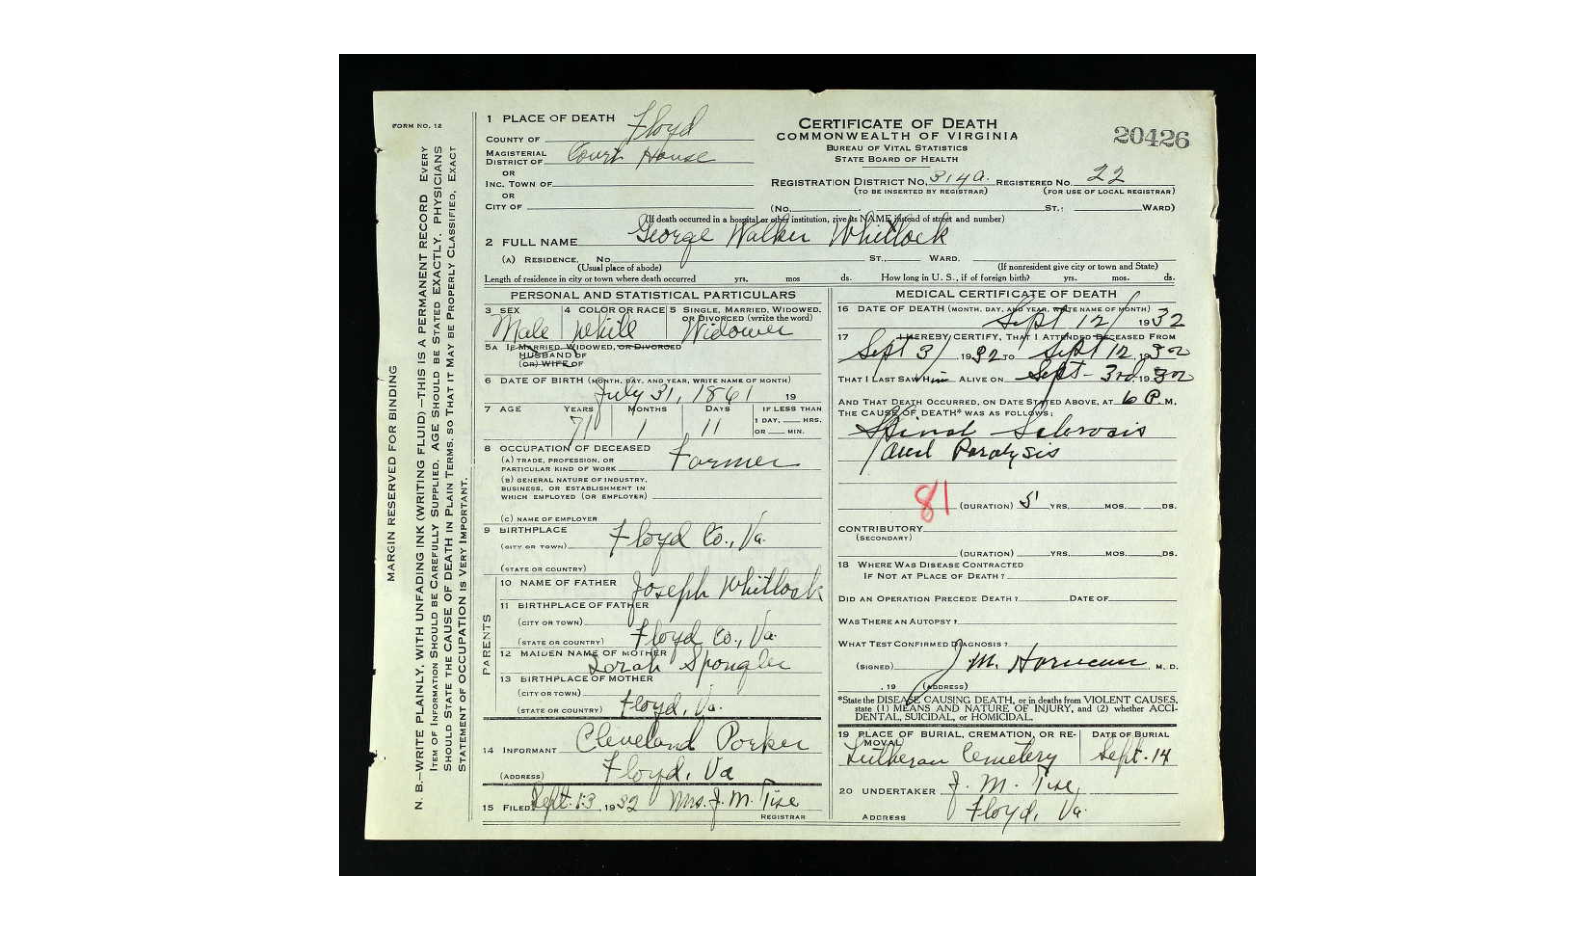 FORM NO. 12
MARGIN RESERVED FOR BINDING
N. B.—WRITE PLAINLY, WITH UNFADING INK (WRITING FLUID)—THIS IS A PERMANENT RECORD. EVERY
ITEM OF INFORMATION SHOULD BE CAREFULLY SUPPLIED. AGE SHOULD BE STATED EXACTLY. PHYSICIANS
SHOULD STATE THE CAUSE OF DEATH IN PLAIN TERMS, SO THAT IT MAY BE PROPERLY CLASSIFIED. EXACT
STATEMENT OF OCCUPATION IS VERY IMPORTANT.
CERTIFICATE OF DEATH
COMMONWEALTH OF VIRGINIA
BUREAU OF VITAL STATISTICS
STATE BOARD OF HEALTH
20426
1 PLACE OF DEATH
COUNTY OF Floyd
MAGISTERIAL
DISTRICT OF Court House
OR
INC. TOWN OF
OR
CITY OF
REGISTRATION DISTRICT NO. 314a. REGISTERED NO. 22
(TO BE INSERTED BY REGISTRAR) (FOR USE OF LOCAL REGISTRAR)
(NO. ST.; WARD)
(If death occurred in a hospital or other institution, give its NAME instead of street and number)
2 FULL NAME George Walker Whitlock
(A) RESIDENCE. NO. ST., WARD.
(Usual place of abode) (If nonresident give city or town and State)
Length of residence in city or town where death occurred yrs. mos ds. How long in U. S., if of foreign birth? yrs. mos. ds.
PERSONAL AND STATISTICAL PARTICULARS
3 SEX 4 COLOR OR RACE 5 SINGLE, MARRIED, WIDOWED,
OR DIVORCED (write the word)
Male white Widower
5A IF MARRIED, WIDOWED, OR DIVORCED
HUSBAND OF
(OR) WIFE OF
6 DATE OF BIRTH (MONTH, DAY, AND YEAR, WRITE NAME OF MONTH)
July 31, 1861 19
7 AGE YEARS MONTHS DAYS IF LESS THAN
1 DAY, HRS.
71 1 11 OR MIN.
8 OCCUPATION OF DECEASED
(A) TRADE, PROFESSION, OR
PARTICULAR KIND OF WORK Farmer
(B) GENERAL NATURE OF INDUSTRY,
BUSINESS, OR ESTABLISHMENT IN
WHICH EMPLOYED (OR EMPLOYER)
(C) NAME OF EMPLOYER
9 BIRTHPLACE
(CITY OR TOWN) Floyd Co., Va.
(STATE OR COUNTRY)
PARENTS
10 NAME OF FATHER Joseph Whitlock
11 BIRTHPLACE OF FATHER
(CITY OR TOWN)
(STATE OR COUNTRY) Floyd Co., Va.
12 MAIDEN NAME OF MOTHER Sarah Spangler
13 BIRTHPLACE OF MOTHER
(CITY OR TOWN)
(STATE OR COUNTRY) Floyd, Va.
14 INFORMANT Cleveland Parker
(ADDRESS) Floyd, Va
15 FILED Sept. 13 1932 Mrs. J. M. Tise
REGISTRAR
MEDICAL CERTIFICATE OF DEATH
16 DATE OF DEATH (MONTH, DAY, AND YEAR, WRITE NAME OF MONTH)
Sept 12/ 1932
17 I HEREBY CERTIFY, THAT I ATTENDED DECEASED FROM
Sept 3/ 1932 TO Sept 12, 1932
THAT I LAST SAW Him ALIVE ON Sept- 3rd 1932
AND THAT DEATH OCCURRED, ON DATE STATED ABOVE, AT 6 P. M.
THE CAUSE OF DEATH* WAS AS FOLLOWS:
Spinal Sclerosis
and Paralysis
81 (DURATION) 5 YRS. MOS. DS.
CONTRIBUTORY
(SECONDARY)
(DURATION) YRS. MOS. DS.
18 WHERE WAS DISEASE CONTRACTED
IF NOT AT PLACE OF DEATH?
DID AN OPERATION PRECEDE DEATH? DATE OF
WAS THERE AN AUTOPSY?
WHAT TEST CONFIRMED DIAGNOSIS?
(SIGNED) J M. M. D.
, 19 (ADDRESS)
*State the DISEASE CAUSING DEATH, or in deaths from VIOLENT CAUSES,
state (1) MEANS AND NATURE OF INJURY, and (2) whether ACCI-
DENTAL, SUICIDAL, or HOMICIDAL.
19 PLACE OF BURIAL, CREMATION, OR RE- DATE OF BURIAL
MOVAL
Lutheran Cemetery Sept. 14
20 UNDERTAKER J. M. Tise,
ADDRESS Floyd, Va.